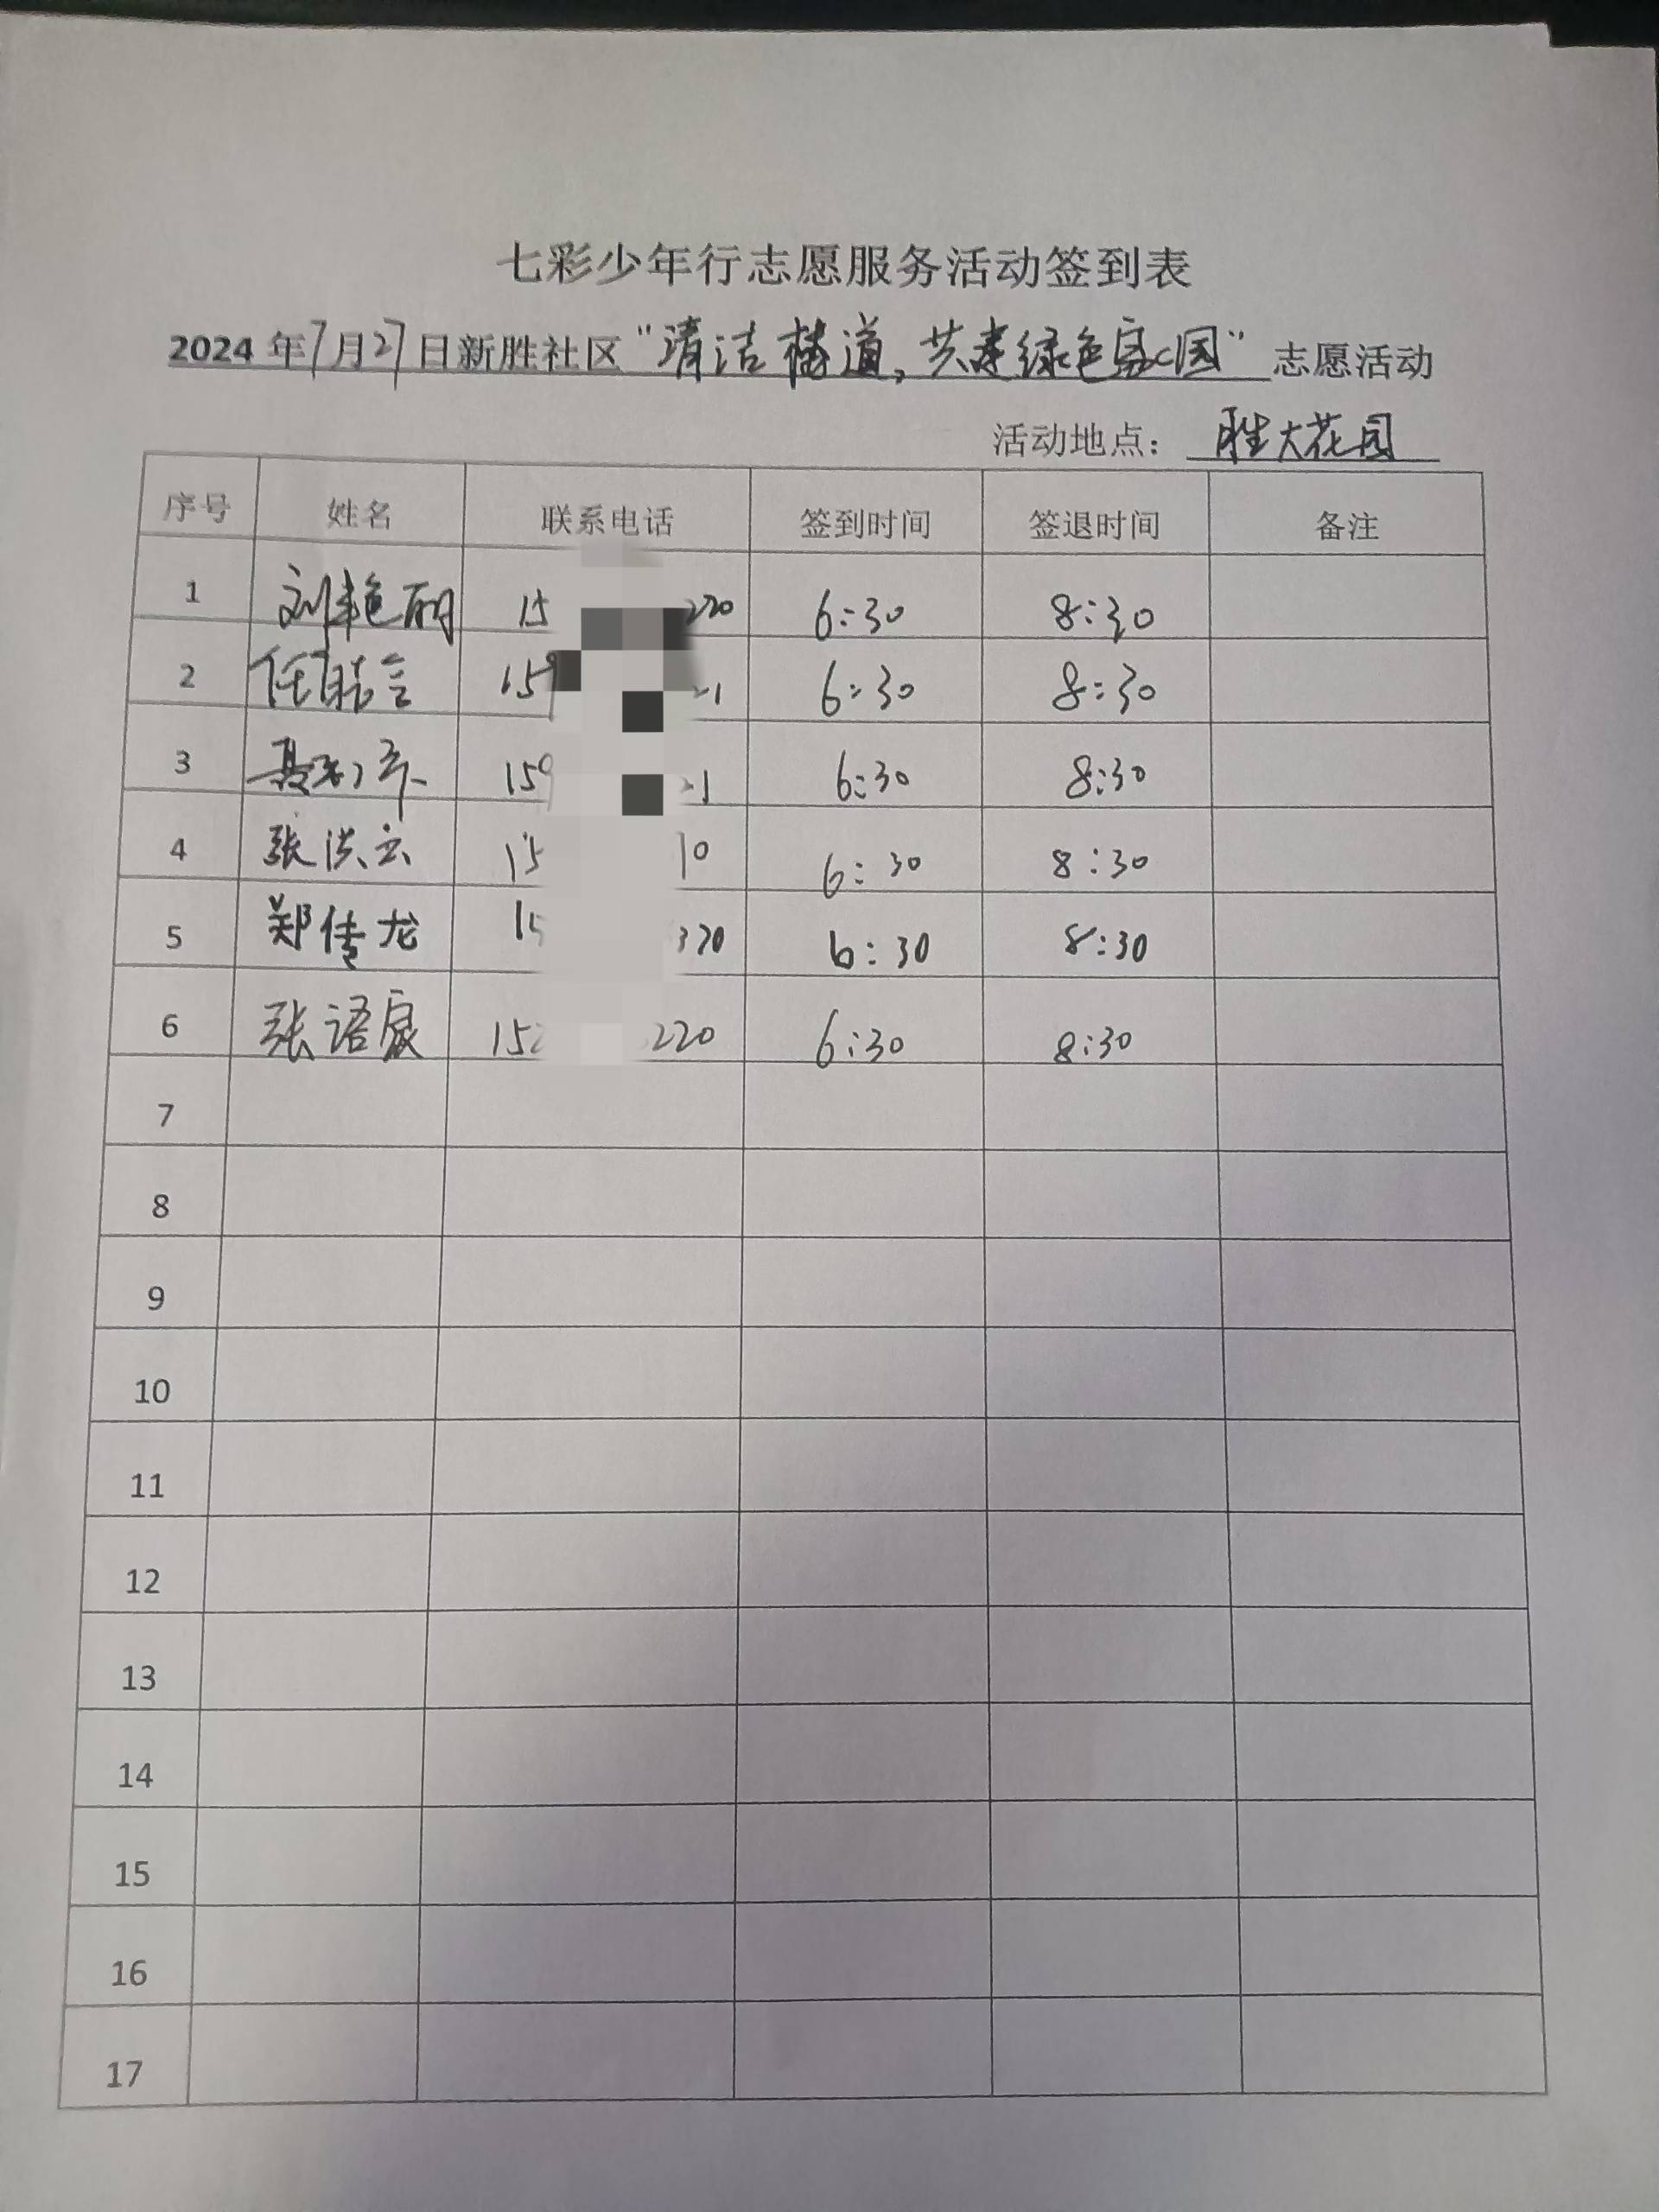 七彩少年行志愿服务活动签到表
2024年7月27日新胜社区“清洁楼道，共建绿色家园”志愿活动
活动地点：胜大花园
序号 姓名 联系电话 签到时间 签退时间 备注
1 刘艳丽 15 220 6:30 8:30
2 任 159 21 6:30 8:30
3 聂 159 21 6:30 8:30
4 张洪云 15 10 6:30 8:30
5 郑传龙 15 370 6:30 8:30
6 张语宸 152 220 6:30 8:30
7
8
9
10
11
12
13
14
15
16
17